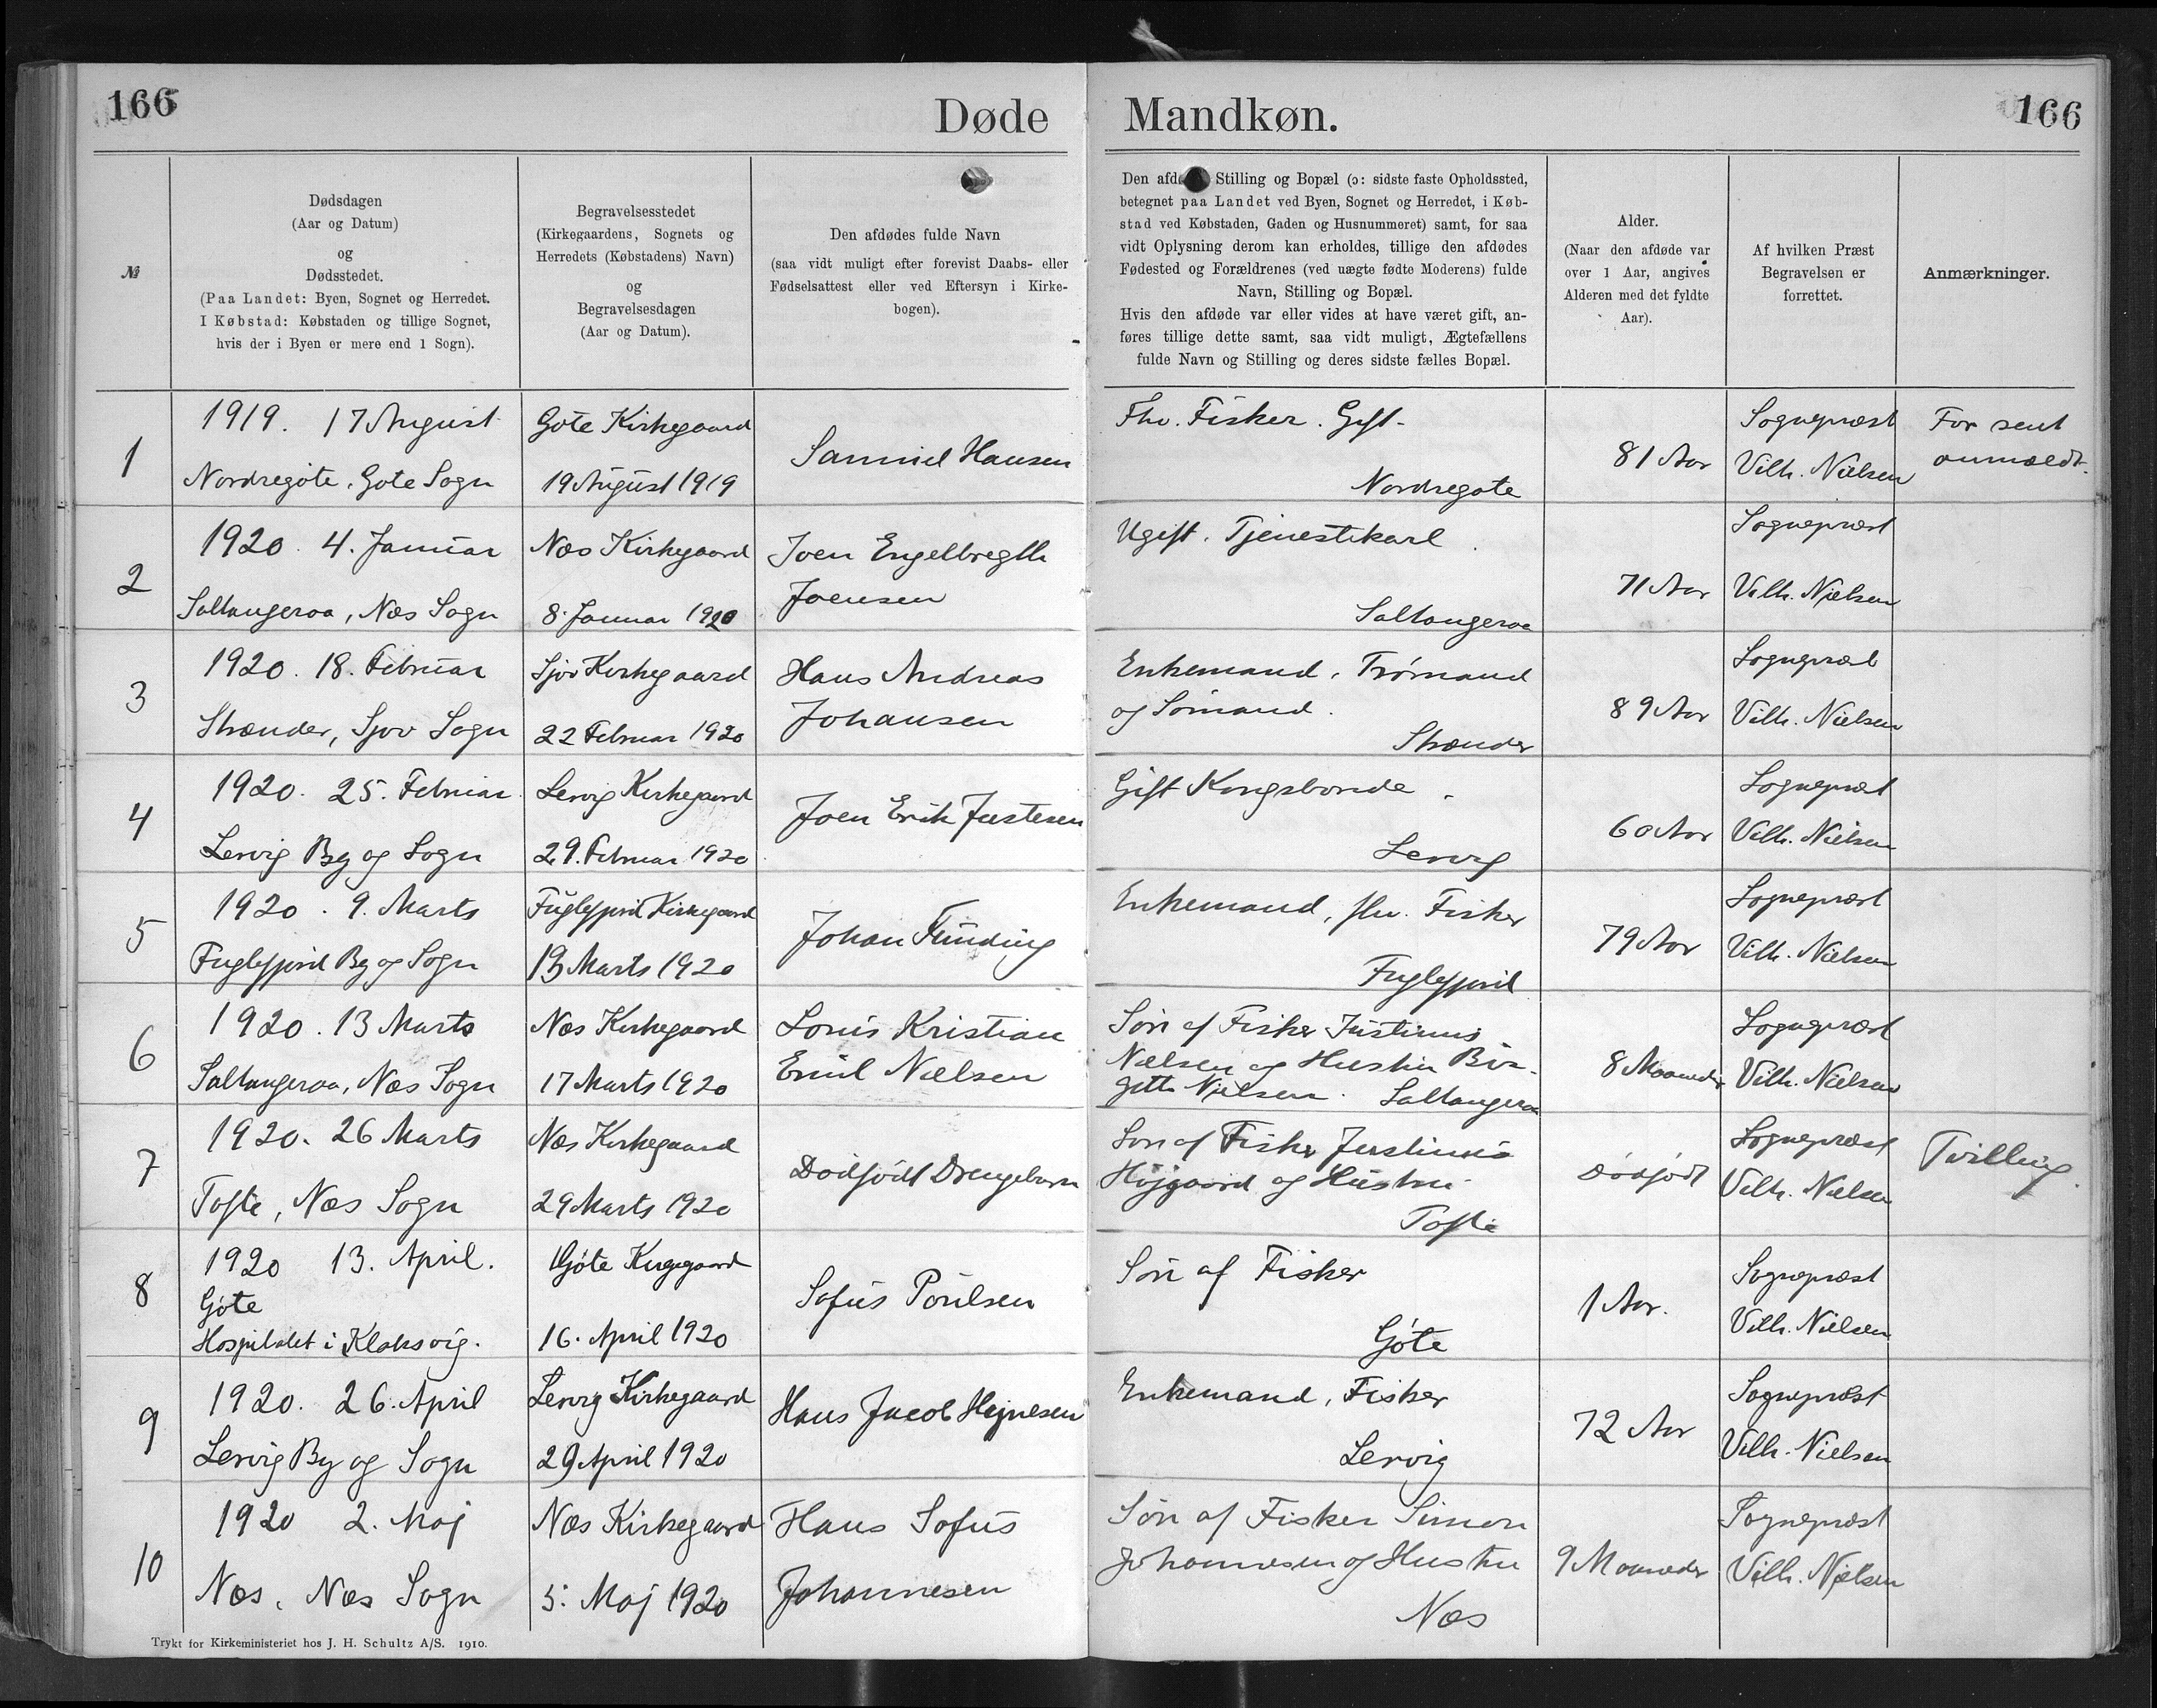 166
Døde
Mandkøn.
166
№
Dødsdagen
(Aar og Datum)
og
Dødsstedet.
(Paa Landet: Byen, Sognet og Herredet.
I Købstad: Købstaden og tillige Sognet,
hvis der i Byen er mere end 1 Sogn).
Begravelsesstedet
(Kirkegaardens, Sognets og
Herredets (Købstadens) Navn)
og
Begravelsesdagen
(Aar og Datum).
Den afdødes fulde Navn
(saa vidt muligt efter forevist Daabs- eller
Fødselsattest eller ved Eftersyn i Kirke-
bogen).
Stilling og Bopæl (ɔ: sidste faste Opholdssted,
betegnet paa Landet ved Byen, Sognet og Herredet, i Køb-
stad ved Købstaden, Gaden og Husnummeret) samt, for saa
vidt Oplysning derom kan erholdes, tillige den afdødes
Fødested og Forældrenes (ved uægte fødte Moderens) fulde
Navn, Stilling og Bopæl.
Hvis den afdøde var eller vides at have været gift, an-
føres tillige dette samt, saa vidt muligt, Ægtefællens
fulde Navn og Stilling og deres sidste fælles Bopæl.
Alder.
(Naar den afdøde var
over 1 Aar, angives
Alderen med det fyldte
Aar).
Af hvilken Præst
Begravelsen er
forrettet.
Anmærkninger.
1
1919. 17 August
Nordregøte, Gøte Sogn
Gøte Kirkegaard
19 August 1919
Samuel Hansen
Fhv. Fisker. Gift.
Nordregøte
81 Aar
Sognepræst
Vilh. Nielsen
For sent
anmeldt.
2
1920. 4. Januar
Saltangeraa, Næs Sogn
Næs Kirkegaard
8. Januar 1920
Joen Engelbregth
Joensen
Ugift. Tjenestekarl
Saltangeraa
71 Aar
Sognepræst
Vilh. Nielsen
3
1920. 18. Februar
Strænder, Sjov Sogn
Sjov Kirkegaard
22 Februar 1920
Hans Andreas
Johansen
Enkemand,
og Sømand.
Strænder
89 Aar
Sognepræst
Vilh. Nielsen
4
1920. 25. Februar
Lervig By og Sogn
Lervig Kirkegaard
29. Februar 1920
Joen Erik Justesen
Gift Kongsbonde.
Lervig
60 Aar
Sognepræst
Vilh. Nielsen
5
1920. 9. Marts
Fuglefjord By og Sogn
Fuglefjord Kirkegaard
13 Marts 1920
Johan Funding
Enkemand, fhv. Fisker
Fuglefjord
79 Aar
Sognepræst
Vilh. Nielsen
6
1920. 13 Marts
Saltangeraa, Næs Sogn
Næs Kirkegaard
17 Marts 1920
Louis Kristian
Emil Nielsen
Søn af Fisker Justinus
Nielsen og Hustru Bir-
gitte Nielsen. Saltangeraa
8 Maaneder
Sognepræst
Vilh. Nielsen
7
1920. 26 Marts
Tofte, Næs Sogn
Næs Kirkegaard
29 Marts 1920
Dødfødt Drengebarn
Søn af Fisker Justinus
Højgaard og Hustru
Tofte
Dødfødt
Sognepræst
Vilh. Nielsen
Tvilling.
8
1920 13. April.
Gøte
Hospitalet i Klaksvig.
Gøte Kirkegaard
16. April 1920
Sofus Poulsen
Søn af Fisker
Gøte
1 Aar.
Sognepræst
Vilh. Nielsen
9
1920. 26. April
Lervig By og Sogn
Lervig Kirkegaard
29 April 1920
Hans Jacob Hejnesen
Enkemand, Fisker
Lervig
72 Aar
Sognepræst
Vilh. Nielsen
10
1920 2. Maj
Næs, Næs Sogn
Næs Kirkegaard
5. Maj 1920
Hans Sofus
Johannesen
Søn af Fisker Simon
Johannesen og Hustru
Næs
9 Maaneder
Sognepræst
Vilh. Nielsen
Trykt for Kirkeministeriet hos J. H. Schultz A/S. 1910.